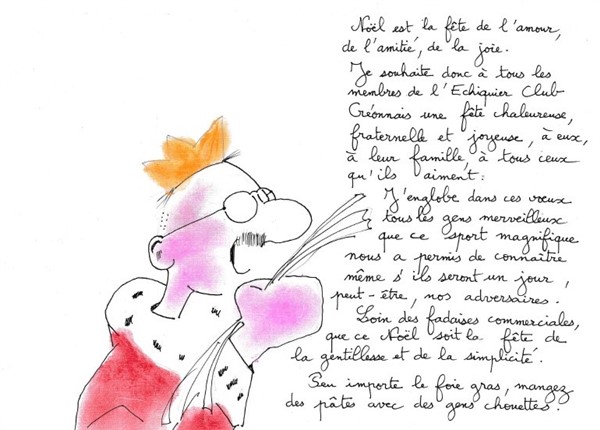 Noël est la fête de l'amour,
de l'amitié, de la joie.
Je souhaite donc à tous les
membres de l'Echiquier Club
Créonnais une fête chaleureuse,
fraternelle et joyeuse, à eux,
à leur famille, à tous ceux
qu'ils aiment.
J'englobe dans ces vœux
tous les gens merveilleux
que ce sport magnifique
nous a permis de connaître
même s'ils seront un jour,
peut-être, nos adversaires.
Loin des fadaises commerciales,
que ce Noël soit la fête de
la gentillesse et de la simplicité.
Peu importe le foie gras, mangez
des pâtes avec des gens chouettes.